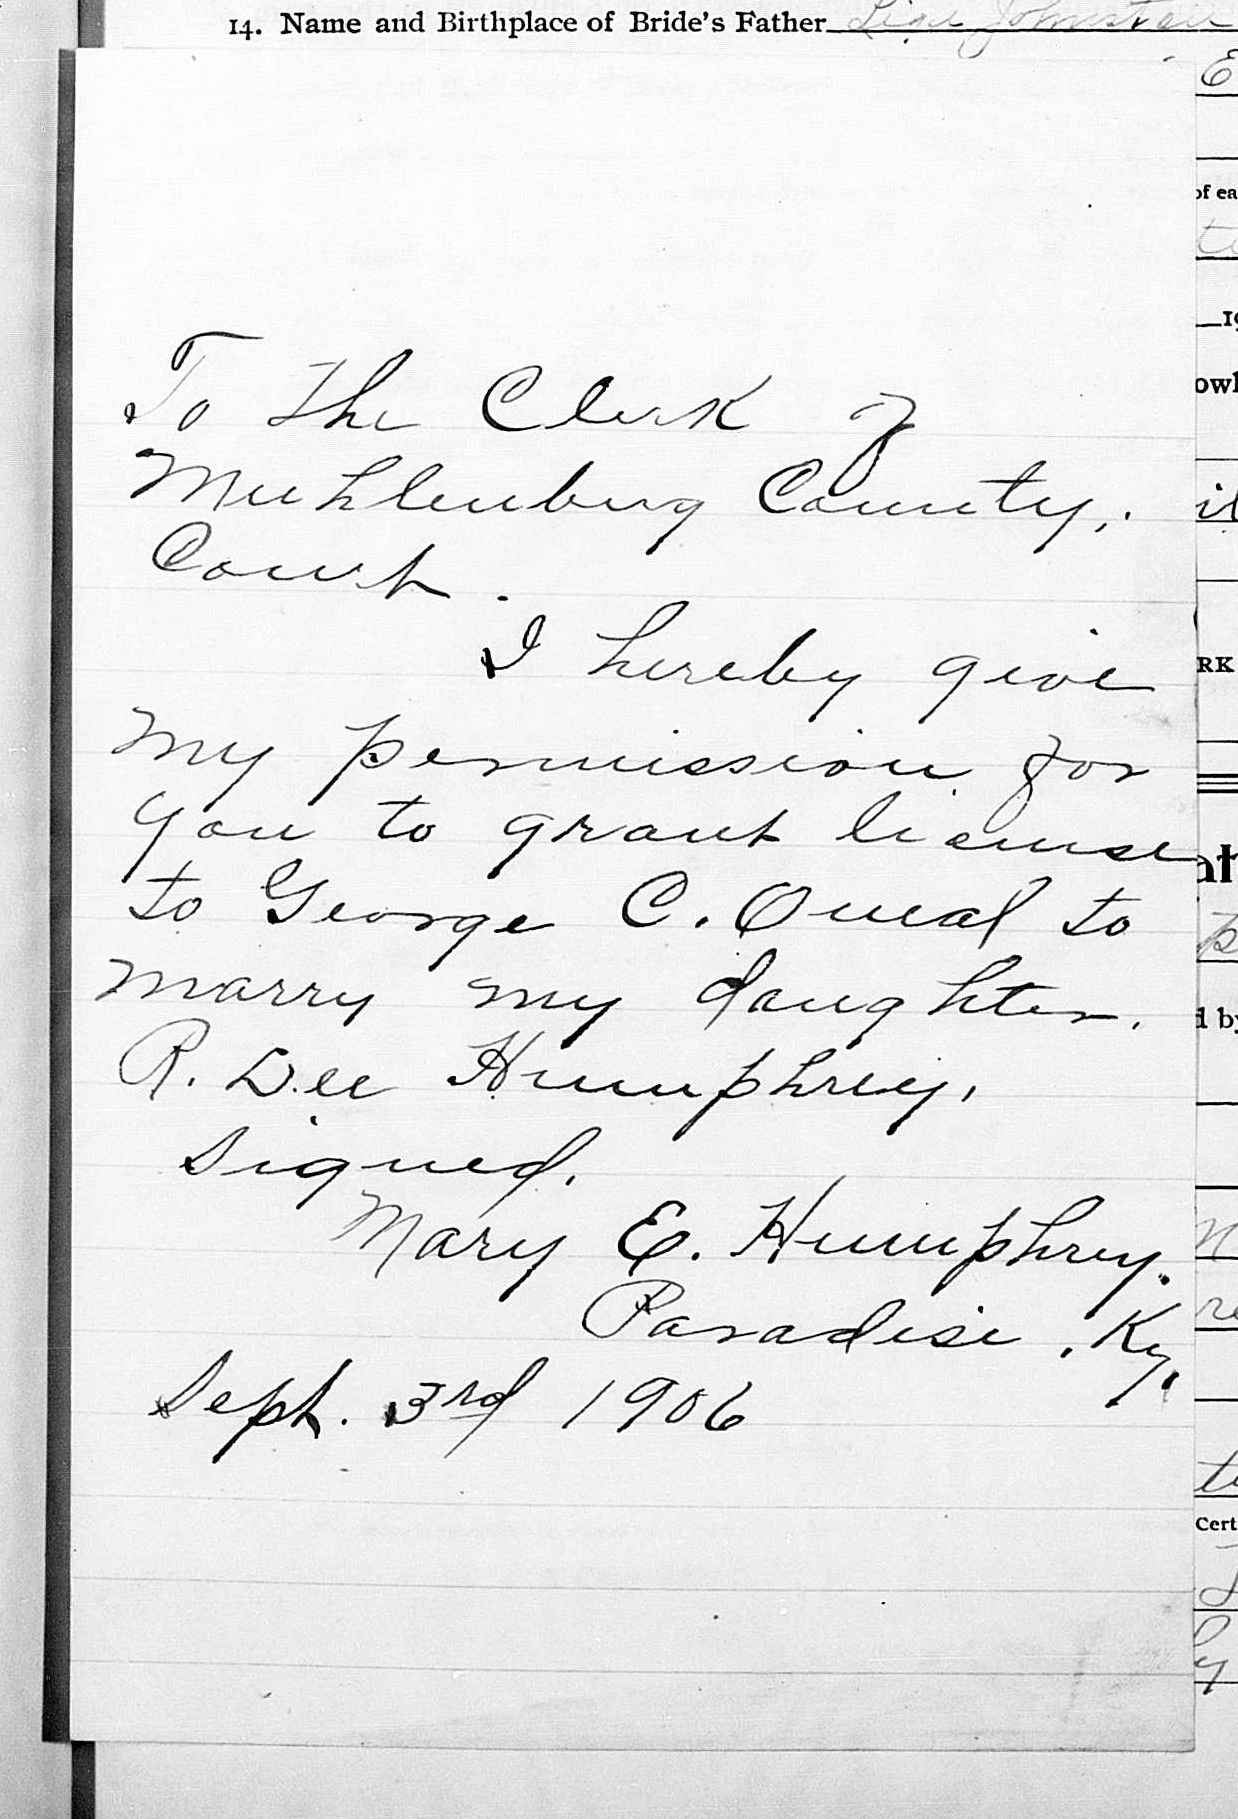 14. Name and Birthplace of Bride's Father Johnston
E
of ea
19
To The Clerk of
Muhlenburg County,.
Court.
I hereby give
my permission for
you to grant license
to George C. Oneal to
marry my daughter.
R. Dee Humphrey,
Signed.
Mary E. Humphrey.
Paradise, Ky.
Sept. 3rd 1906
owl
RK
at
d by
Cert